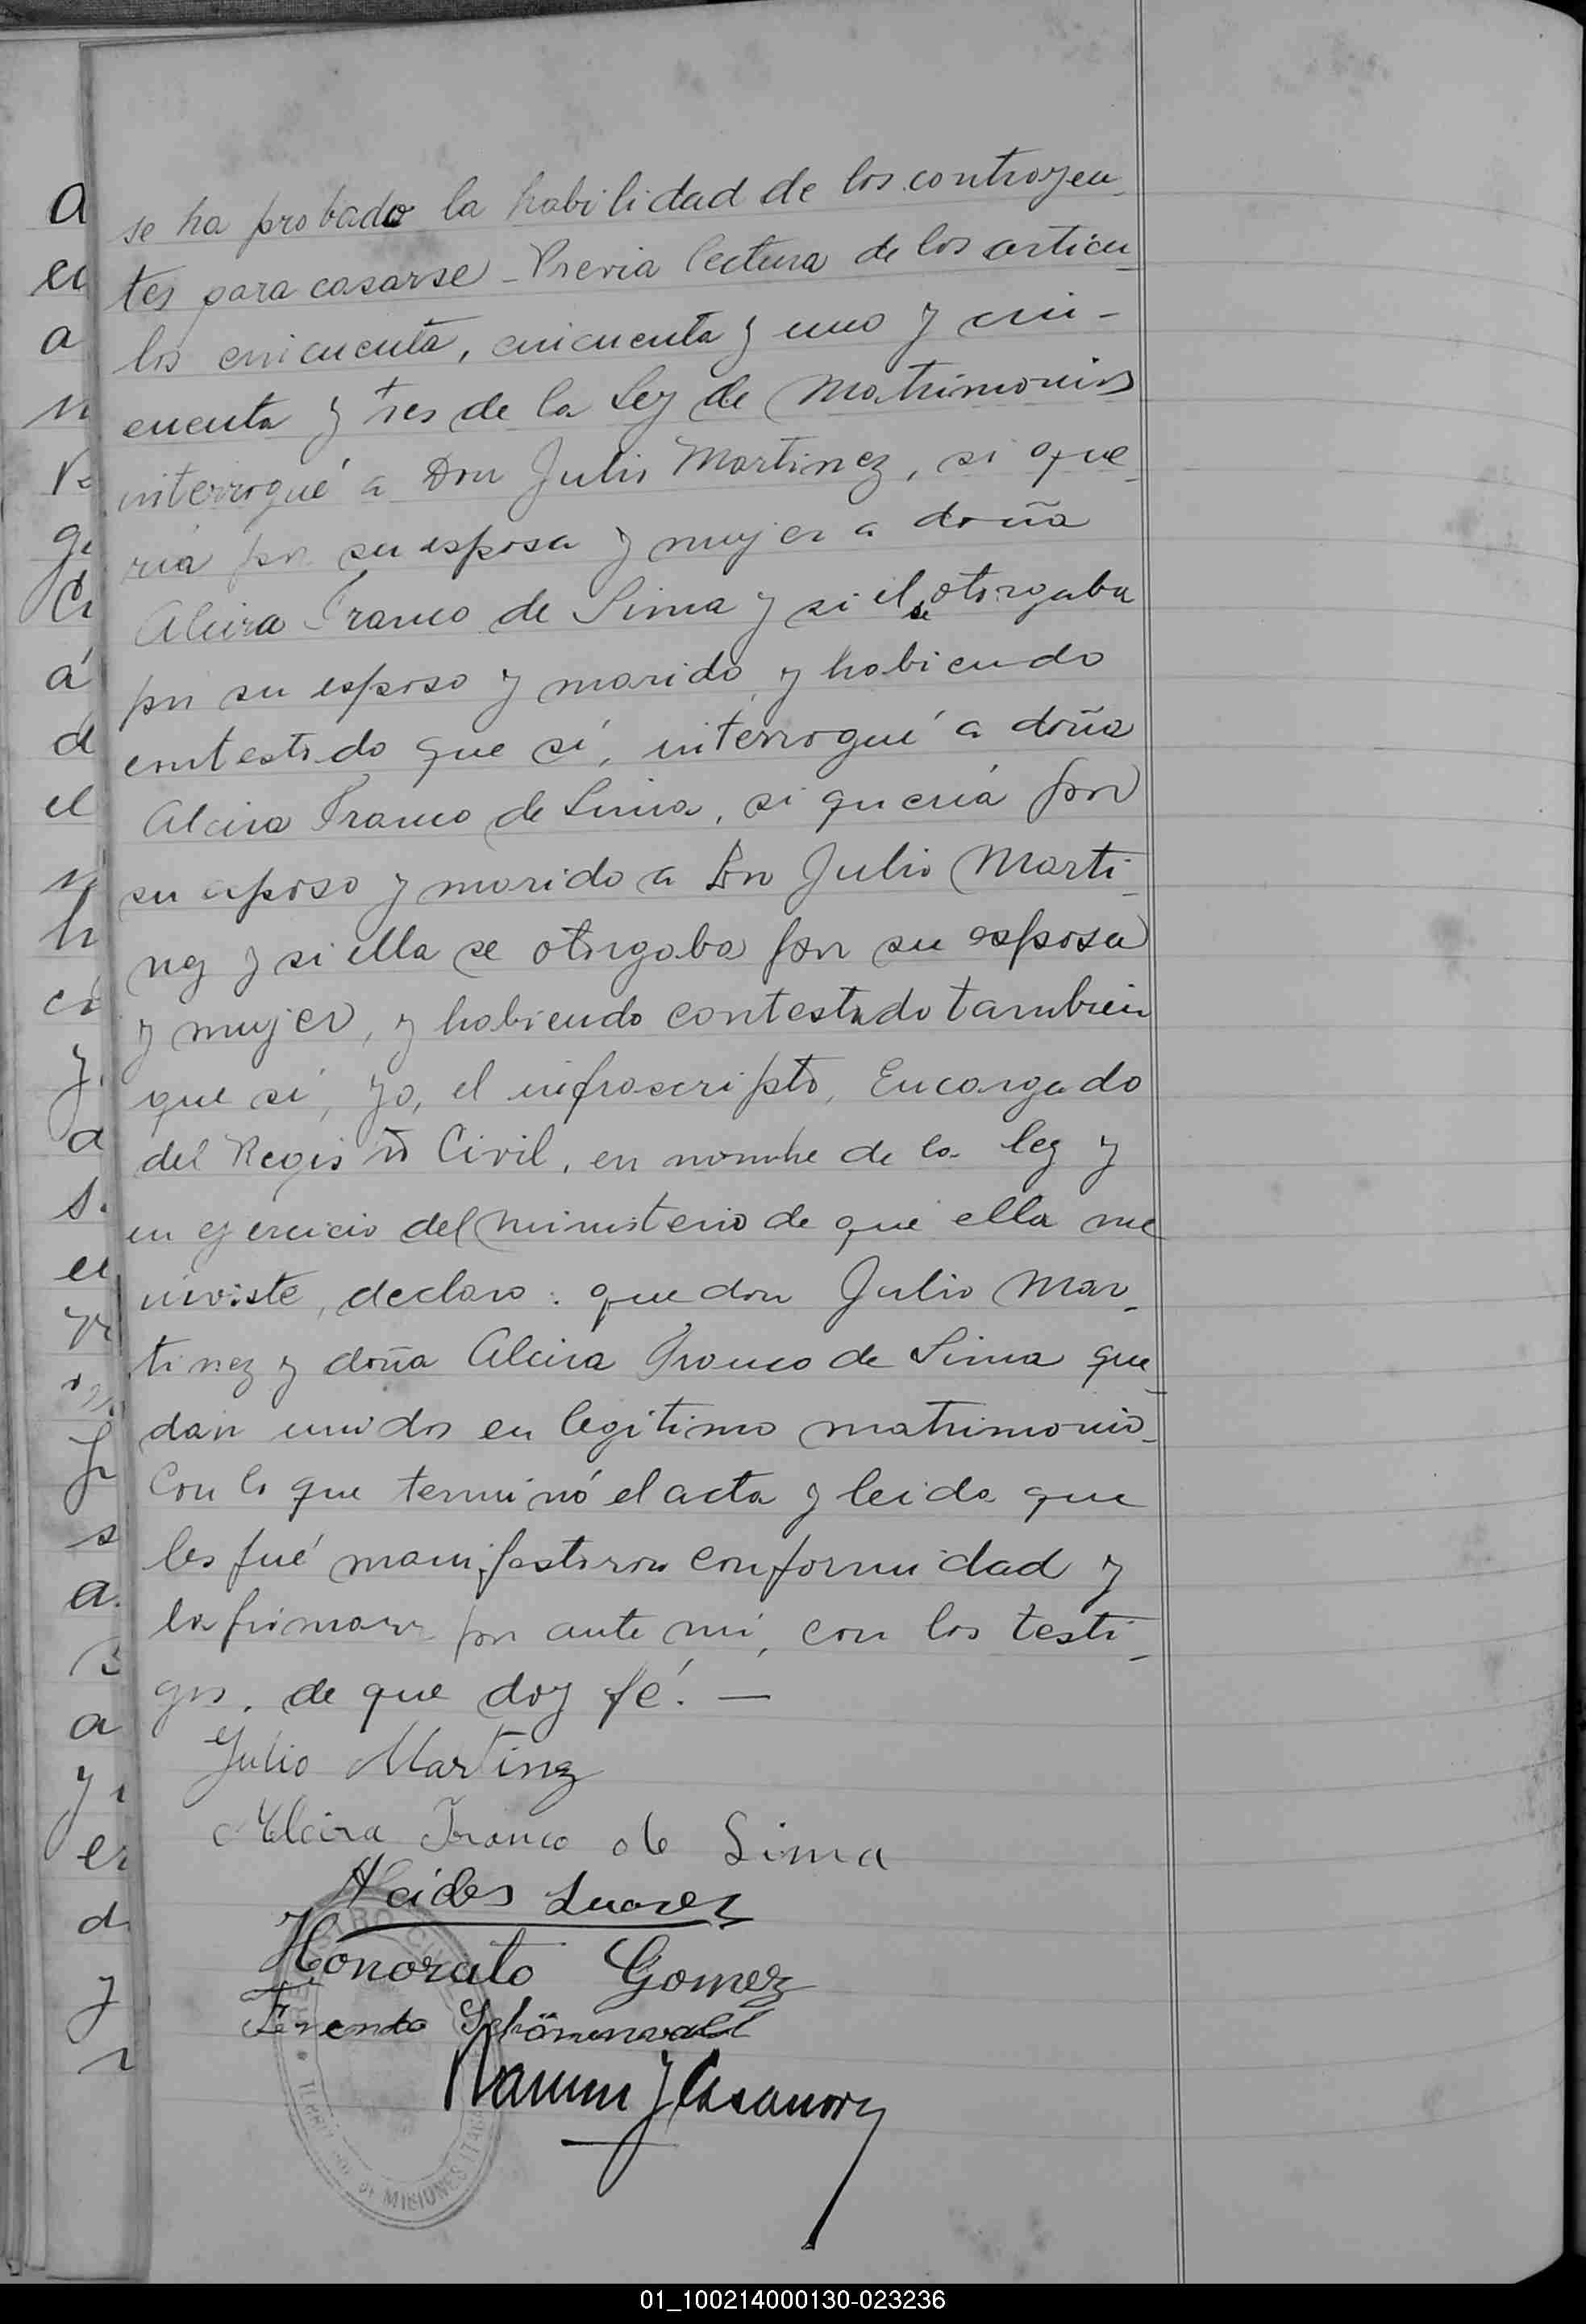 se ha probado la habilidad de los contrayen_
tes para casarse - Previa lectura de los articu_
los cincuenta, cincuenta y uno y cin-
cuenta y tres de la Ley de Matrimonios
interrogué a Don Julio Martinez, si que_
ria por su esposa y mujer a doña
Alcira Franco de Lima y si el se otorgaba
por su esposo y marido, y habiendo
contestado que sí, interrogué a doña
Alcira Franco de Lima, si quería por
su esposo y marido a Don Julio Marti_
nez y si ella se otorgaba por su esposa
y mujer, y habiendo contestado tambien
que sí, yo, el infrascripto, Encargado
del Registro Civil, en nombre de la ley y
en ejercicio del ministerio de que ella me
inviste, declaro: que don Julio Mar_
tinez y doña Alcira Franco de Lima que_
dan unidos en legitimo matrimonio_
Con lo que terminó el acta y leida que
les fué manifestaron conformidad y
la firmaron por ante mi, con los testi_
gos, de que doy fé. —
Julio Martinez
Alcira Franco de Lima
Alcides Suarez
Honorato Gomez
Schönenwald
Ramon J Casanova
MISIONES
01_100214000130-023236